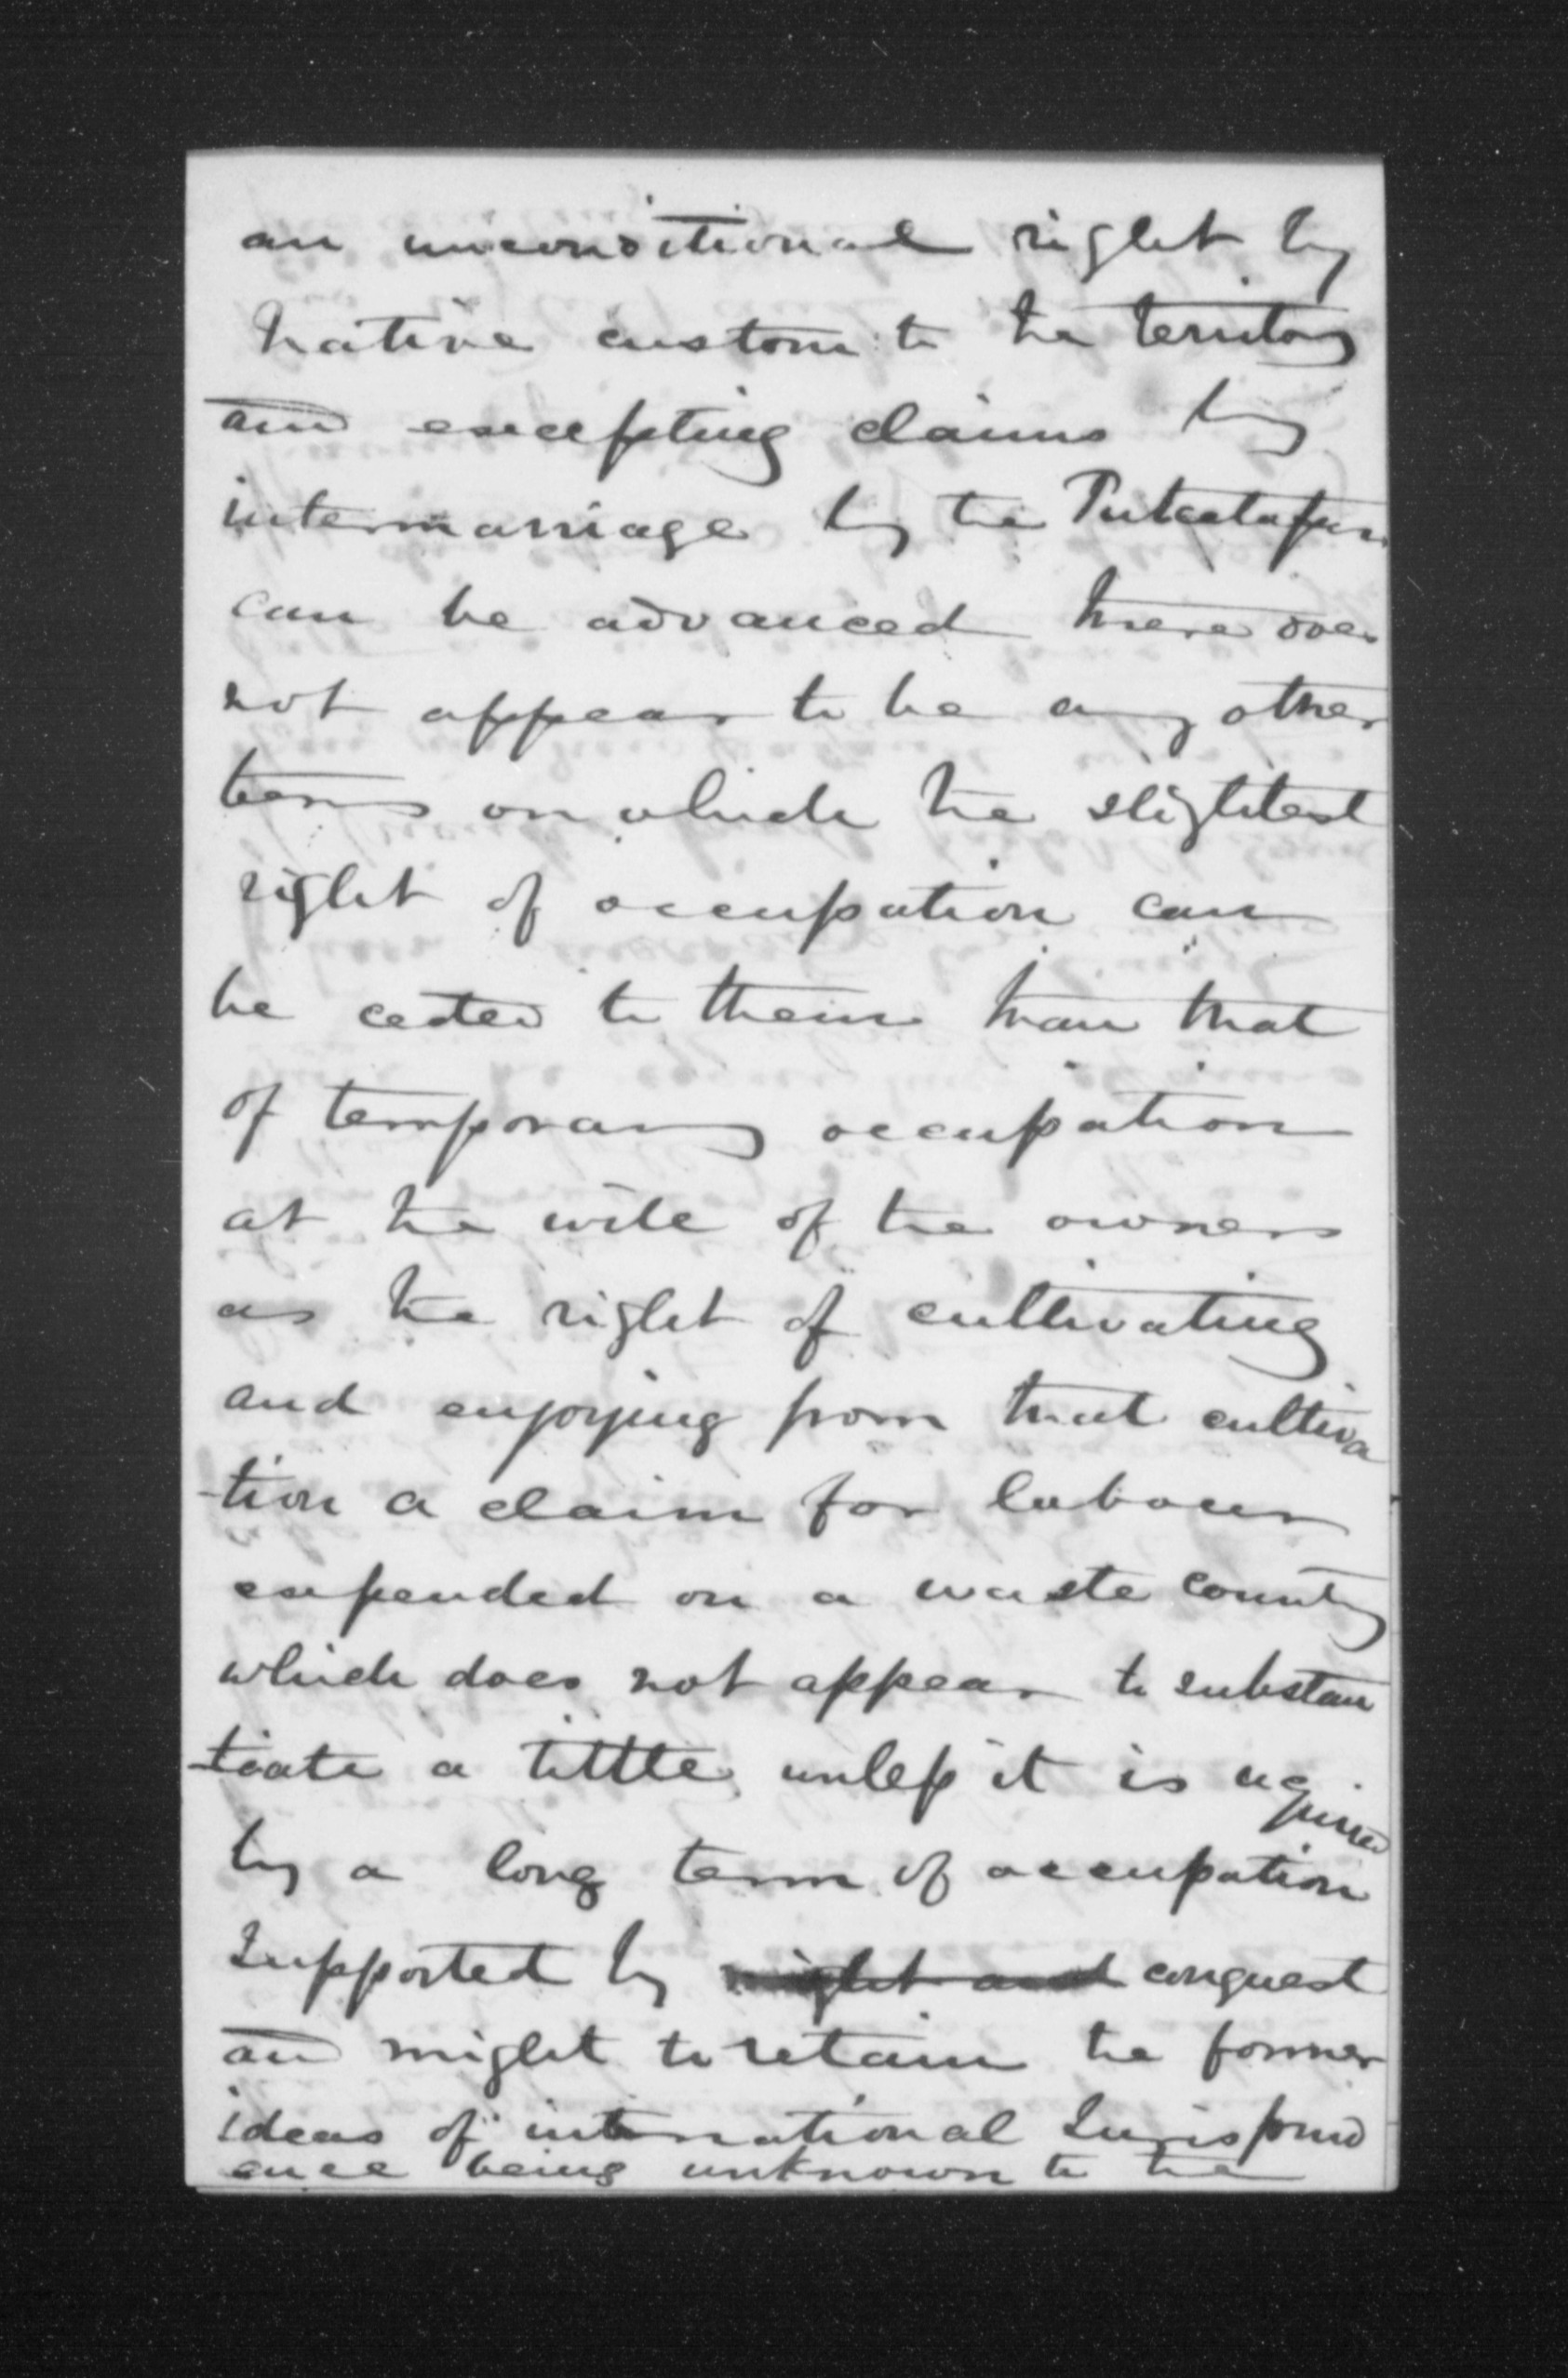 an unconditional right by
native custom to the territory
and excepting claims by
intermarriage by the
can be advanced there does
not appear to be any other
terms on which the slightest
right of occupation can
be ceded to them than that
of temporary occupation
at the will of the owners
as the right of cultivating
and enjoying from that cultiva
-tion a claim for labour
expended on a waste country
which does not appear to substan
-tiate a tittle unless it is aquired
by a long term of occupation
supported by right and conquest
and might to retain the former
ideas of international Jurisprud
ence being unknown to the